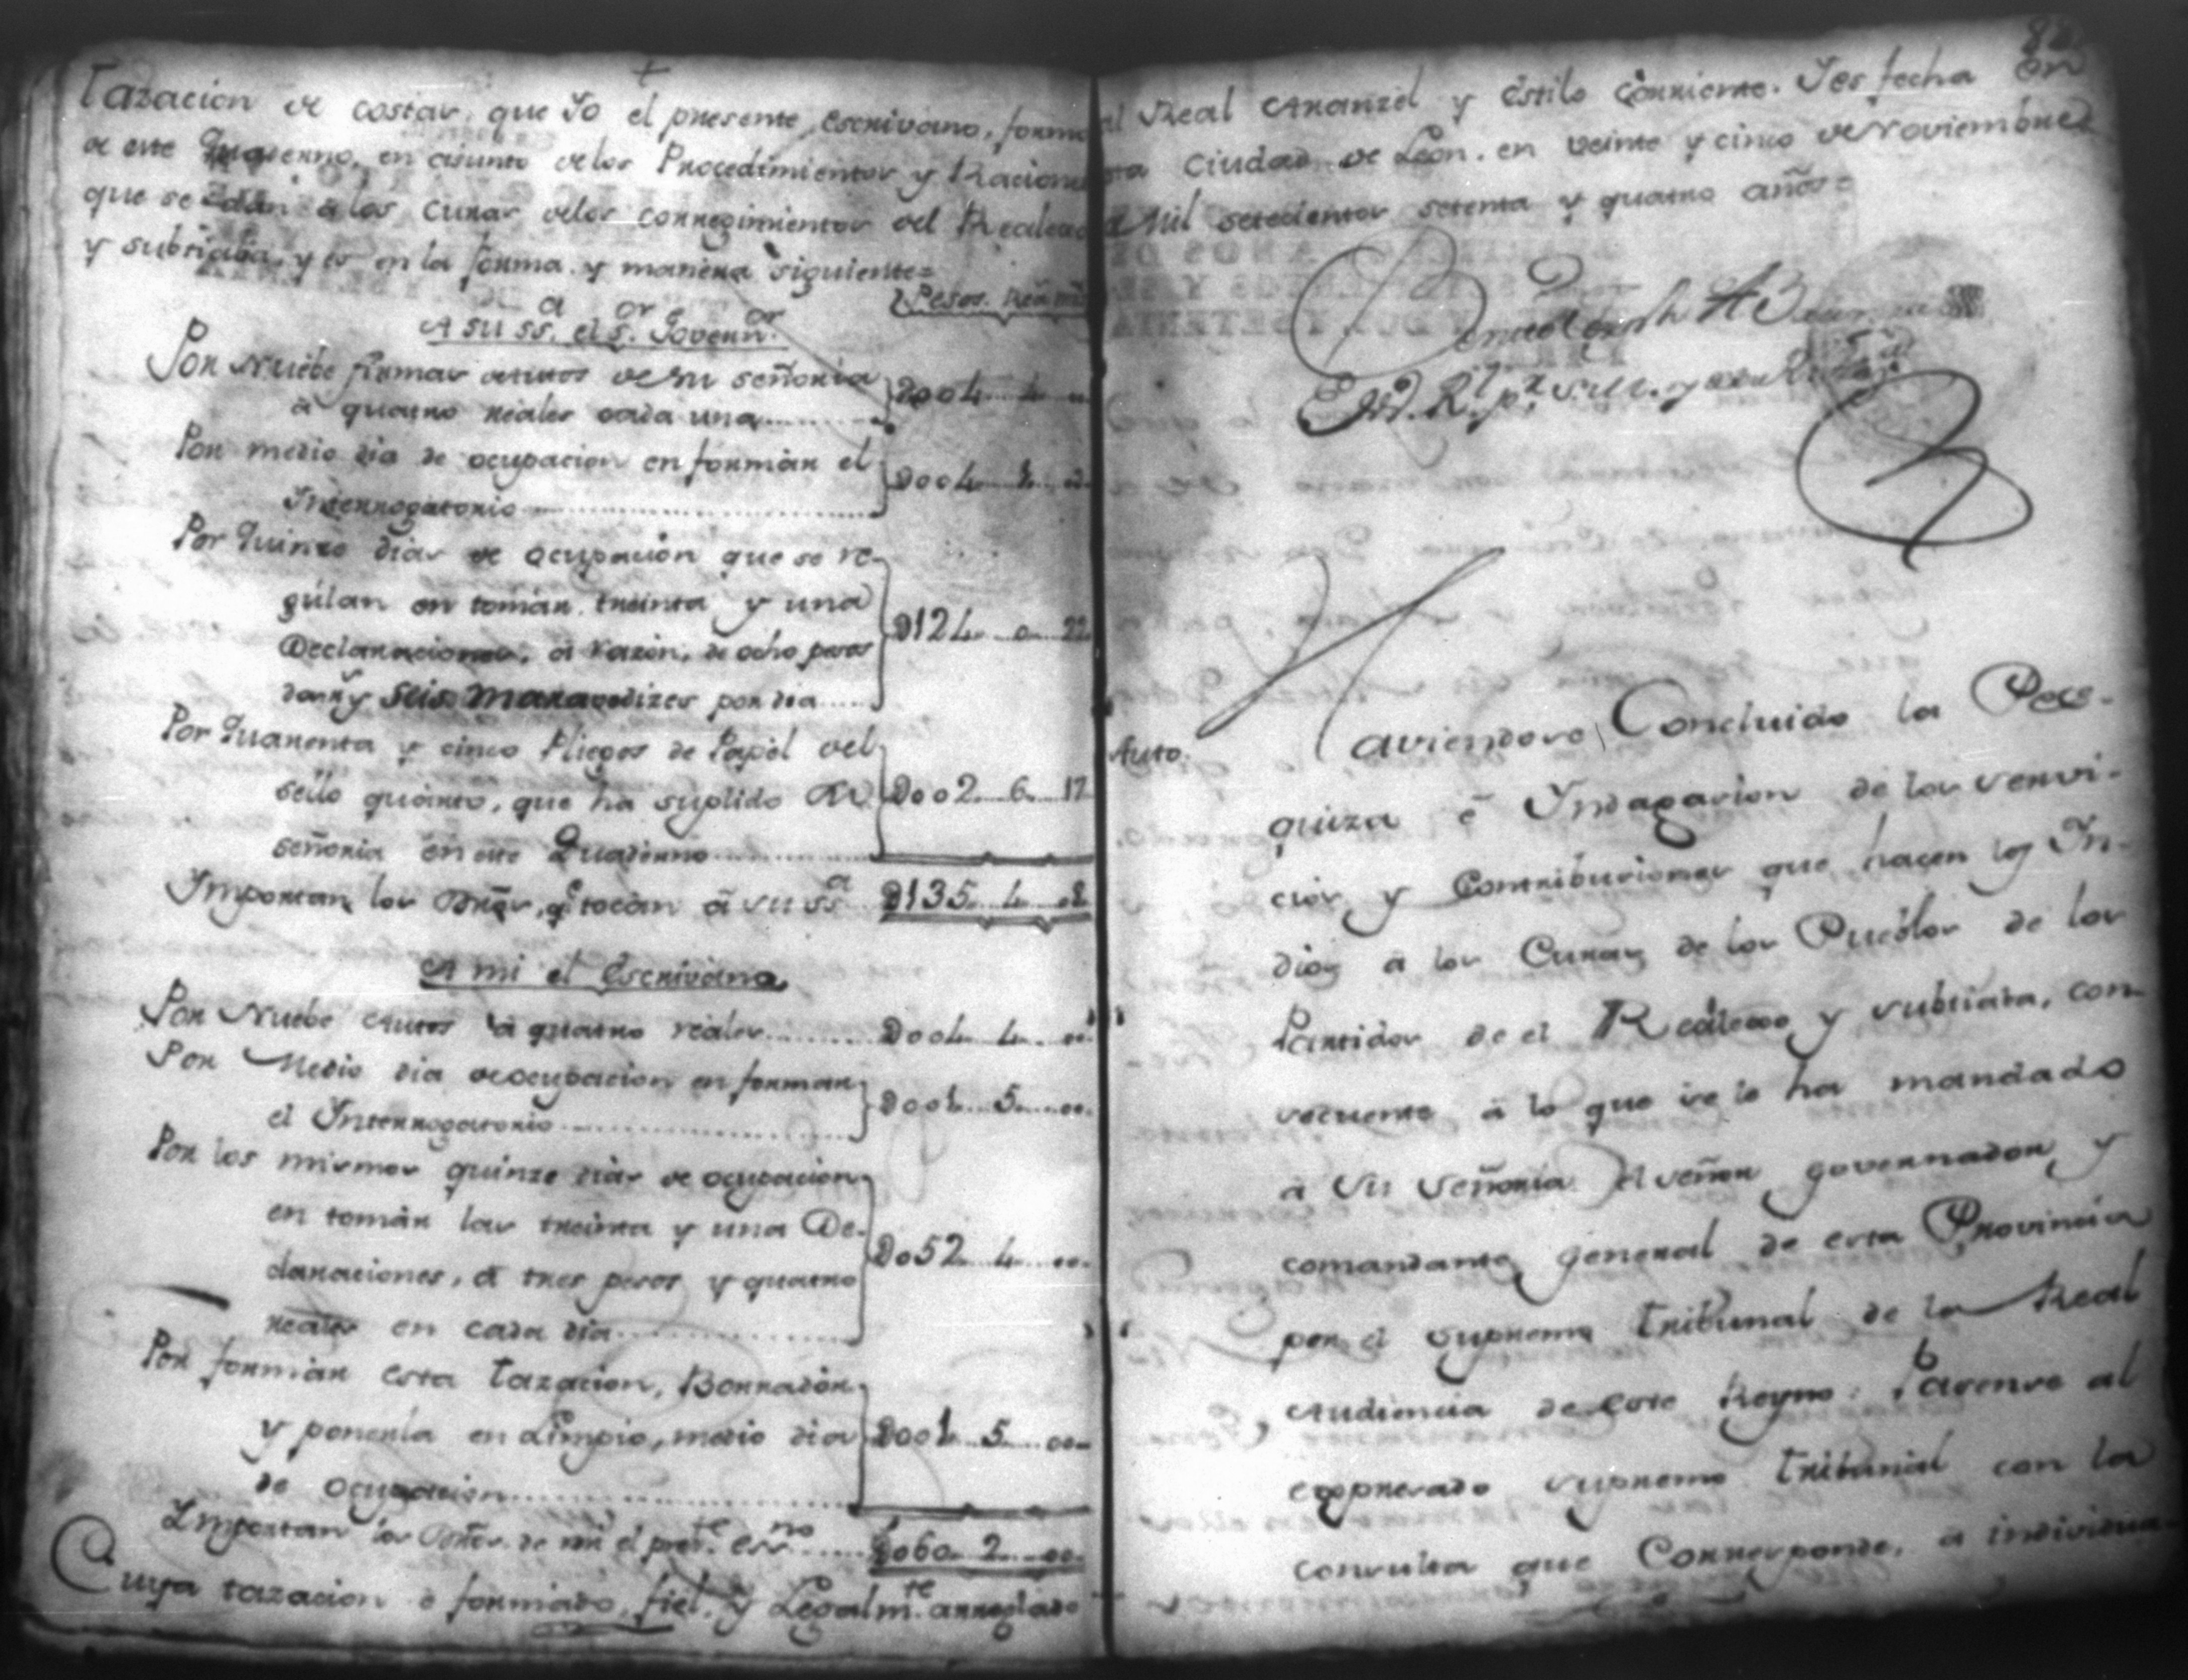 +
Tazacion de costas, que Yo el presente escrivano, formo
de este Quaderno, en asunto delos Procedimientos y Racione
que se dán á los curas delos corregimientos del Realexo
y subtiaba, y es en la forma y manera siguiente=
Pesos. Rs. ms
A su ssa. el sor. Governor.
Por Nuebe firmas de su señoria
á quatro reales cada una D004 4
Por medio dia de ocupacion en formár el
Interrogatorio D004
Por Quinze dias de ocupacion que se re-
gulan en tomár treinta y una
Declaraciones, á razon, de ocho pesos
dos rs. y seis maravedizes por dia D124 0 22
Por Quarenta y cinco Pliegos de Papel del
sello quarto, que ha suplido su
señoria en este Quaderno D002 6 17
Importan los Dros, q. tocan á su ssa D135 4
A mi el Escrivano
Por Nuebe Autos á quatro reales D004 4 00
Por Medio dia de ocupacion en formar
el Interrogatorio D001 5 00
Por los mismos quinze dias de ocupacion
en tomár las treinta y una De-
claraciones, á tres pesos y quatro
reales en cada dia D052 4 00
Por formár esta tazacion, Borradór
y ponerla en Limpio, medio dia
de ocupacion D001 5 00
Importan los Dros. de mi el prete. essno D060 2 00
Cuya tazacion é formado, fiel, y Legalmte. arreglado
82
al Real Aranzél y éstilo córriente. Y es fecha en
sta Ciudad de León, en veinte y cinco de Noviembre
de Mil setecientos setenta y quatro años=
Auto.
Haviendose Concluido la Pes-
quiza é Yndagacion de los servi-
cios y Contribuciones que hacen los In-
dios a los Curas de los Pueblos de los
Partidos de el Realexo y subtiaba, con-
secuente á lo que se le ha mandado
a su señoria el señor governador y
comandante general de esta Provincia
por el supremo tribunal de la Real
Audiencia de este Reyno: Pasense al
expresado supremo tribunal con la
consulta que Corresponde, a individua-